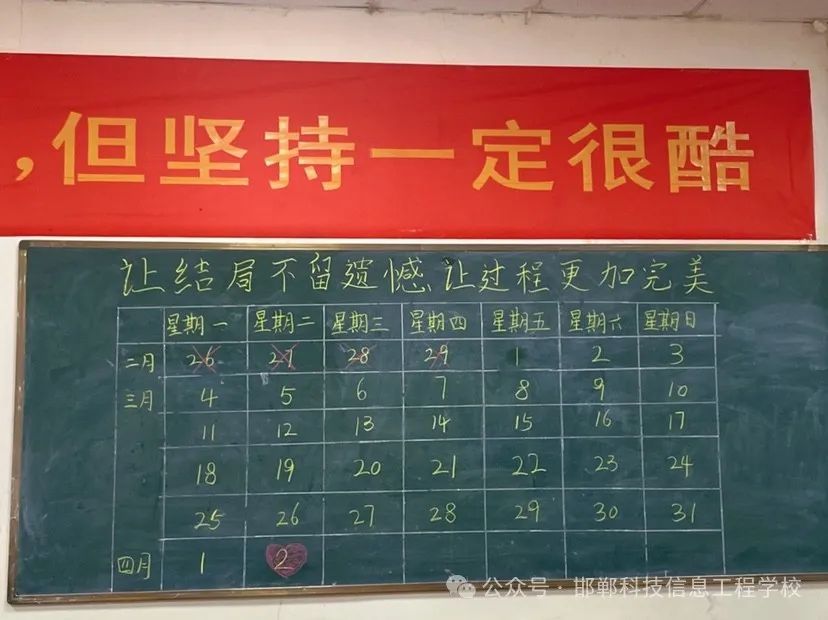 ，但坚持一定很酷
让结局不留遗憾让过程更加完美
星期一 星期二 星期三 星期四 星期五 星期六 星期日
二月 26 27 28 29 1 2 3
三月 4 5 6 7 8 9 10
11 12 13 14 15 16 17
18 19 20 21 22 23 24
25 26 27 28 29 30 31
四月 1 2
公众号·邯郸科技信息工程学校